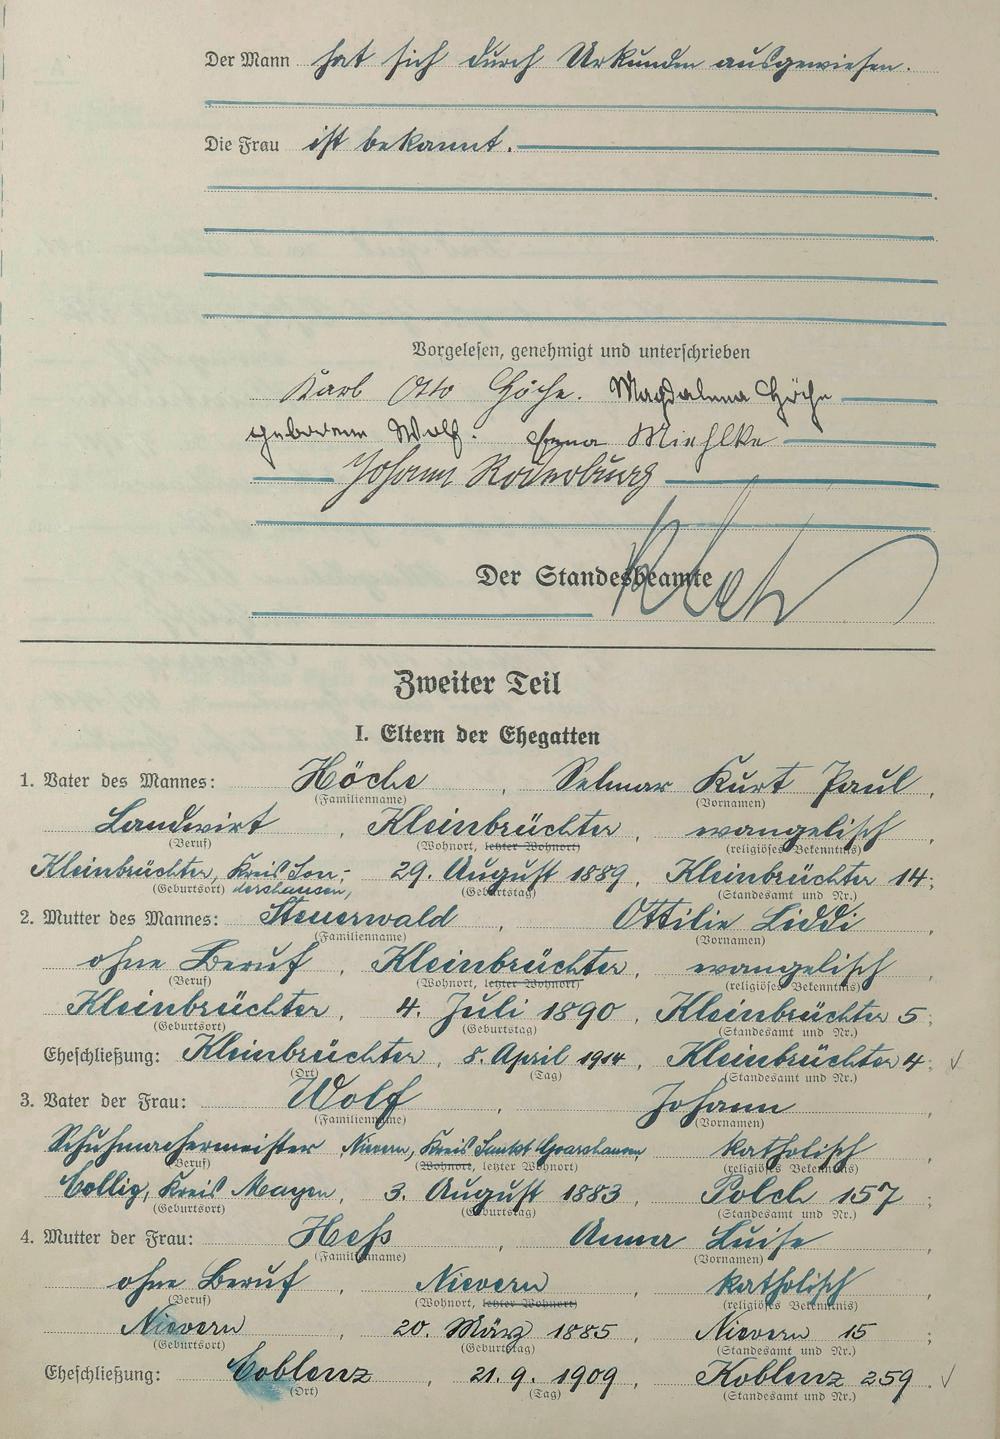 Der Mann hat sich durch Urkunden ausgewiesen.
Die Frau ist bekannt.
Vorgelesen, genehmigt und unterschrieben
Karl Otto Höche. Magdalena Höche
geborene Wolf. Erna Miehlke
Johann Roderburg
Der Standesbeamte
Zweiter Teil
I. Eltern der Ehegatten
1. Vater des Mannes: Höche, Selmar Kurt Paul,
(Familienname) (Vornamen)
Landwirt, Kleinbrüchter, evangelisch
(Beruf) (Wohnort, letzter Wohnort) (religiöses Bekenntnis)
Kleinbrüchter, Kreis Son- 29. August 1889, Kleinbrüchter 14;
(Geburtsort) dershausen, (Geburtstag) (Standesamt und Nr.)
2. Mutter des Mannes: Steuerwald, Ottilie Liddi,
(Familienname) (Vornamen)
ohne Beruf, Kleinbrüchter, evangelisch,
(Beruf) (Wohnort, letzter Wohnort) (religiöses Bekenntnis)
Kleinbrüchter, 4. Juli 1890, Kleinbrüchter 5;
(Geburtsort) (Geburtstag) (Standesamt und Nr.)
Eheschließung: Kleinbrüchter, 8. April 1914, Kleinbrüchter 4;
(Ort) (Tag) (Standesamt und Nr.)
3. Vater der Frau: Wolf, Johann,
(Familienname) (Vornamen)
Schuhmachermeister Nievern, Kreis Sankt Goarshausen katholisch
(Beruf) (Wohnort, letzter Wohnort) (religiöses Bekenntnis)
Collig, Kreis Mayen, 3. August 1883, Polch 157;
(Geburtsort) (Geburtstag) (Standesamt und Nr.)
4. Mutter der Frau: Heß, Anna Luise,
(Familienname) (Vornamen)
ohne Beruf, Nievern, katholisch,
(Beruf) (Wohnort, letzter Wohnort) (religiöses Bekenntnis)
Nievern, 20. März 1885, Nievern 15;
(Geburtsort) (Geburtstag) (Standesamt und Nr.)
Eheschließung: Coblenz, 21. 9. 1909, Koblenz 259.
(Ort) (Tag) (Standesamt und Nr.)